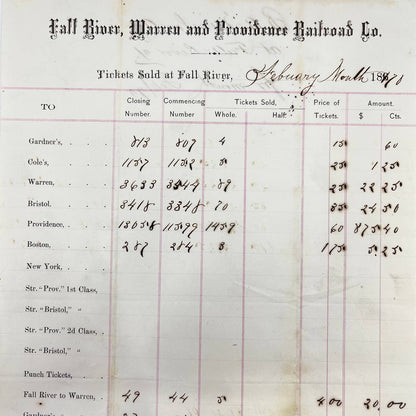 Fall River, Warren and Providence Railroad Co.
Tickets Sold at Fall River, Febuary Month 1870
TO Closing Number. Commencing Number. Tickets Sold, Whole. Half. Price of Tickets. Amount. $ Cts.
Gardner's, . . . . 807 4 15 60
Cole's, . . . . 1157 1152 5 25 1 25
Warren, . . . . 3633 3544 89 25 22 25
Bristol, . . . . 3418 3348 70 35 24 50
Providence, . . . . 13058 11599 1459 60 875 40
Boston, . . . . 287 284 3 175 5 25
New York, . . . .
Str. "Prov." 1st Class, .
Str. "Bristol," "
Str. "Prov." 2d Class, .
Str. "Bristol," "
Punch Tickets, . . .
Fall River to Warren, . 49 44 5 4 00 20.00
Gardner's